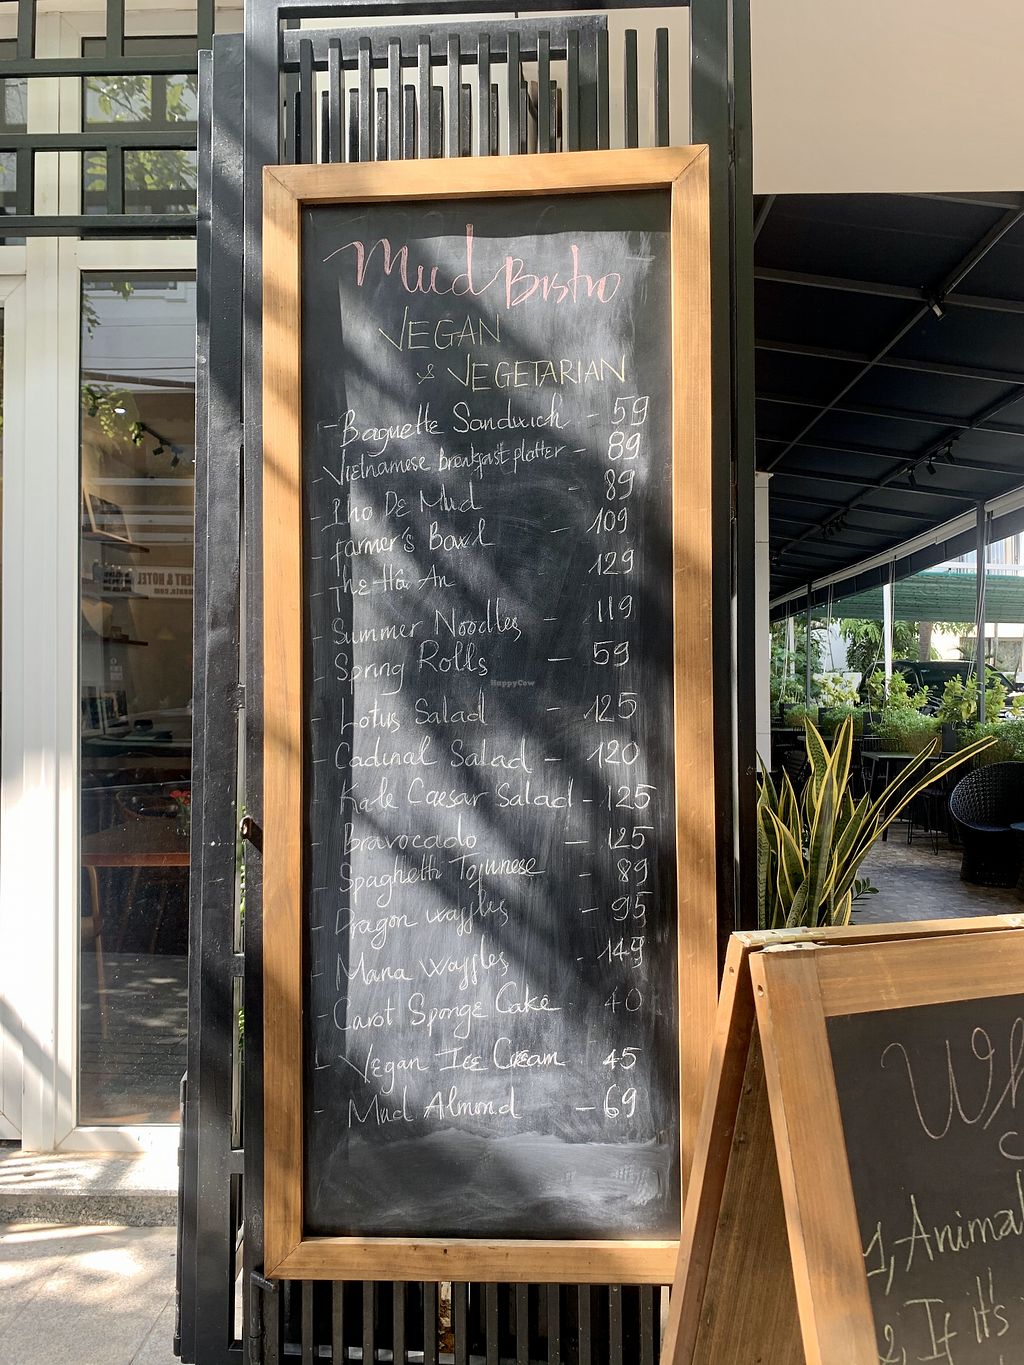 Mud Bistro
VEGAN
& VEGETARIAN
- Baguette Sandwich - 59
- Vietnamese breakfast platter - 89
- Pho De Mud - 89
- Farmer's Bowl - 109
- The Hôi An 129
- Summer Noodles - 119
- Spring Rolls - 59
- Lotus Salad - 125
- Cadinal Salad - 120
- Kale Caesar Salad - 125
- Bravocado - 125
- Spaghetti - 89
- Dragon waffles - 95
- Mana waffles - 149
- Carot Sponge Cake 40
- Vegan Ice Cream 45
- Mud Almond - 69
HappyCow
Wh
1, Animal
2, If it's